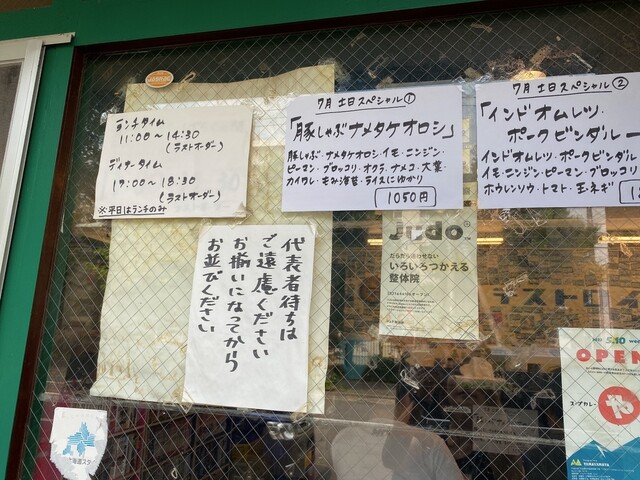 ランチタイム
11:00～14:30
(ラストオーダー)
ディナータイム
17:00～18:30
(ラストオーダー)
※平日はランチのみ
7月 土日スペシャル①
「豚しゃぶナメタケオロシ」
豚しゃぶ・ナメタケオロシ・イモ・ニンジン・
ピーマン・ブロッコリ・オクラ・ナメコ・大葉
カイワレ・モミ海苔・ライスにゆかり
1050円
7月 土日スペシャル②
「インドオムレツ・
ポークビンダルー
インドオムレツ・ポークビンダル
イモ・ニンジン・ピーマン・ブロッコリ
ホウレンソウ・トマト・玉ネギ
代表者待ちは
ご遠慮ください
お揃いになってから
お並びください
judo
だらだら通わせない
いろいろつかえる
整体院
5.10
OPEN
スープカレー
や